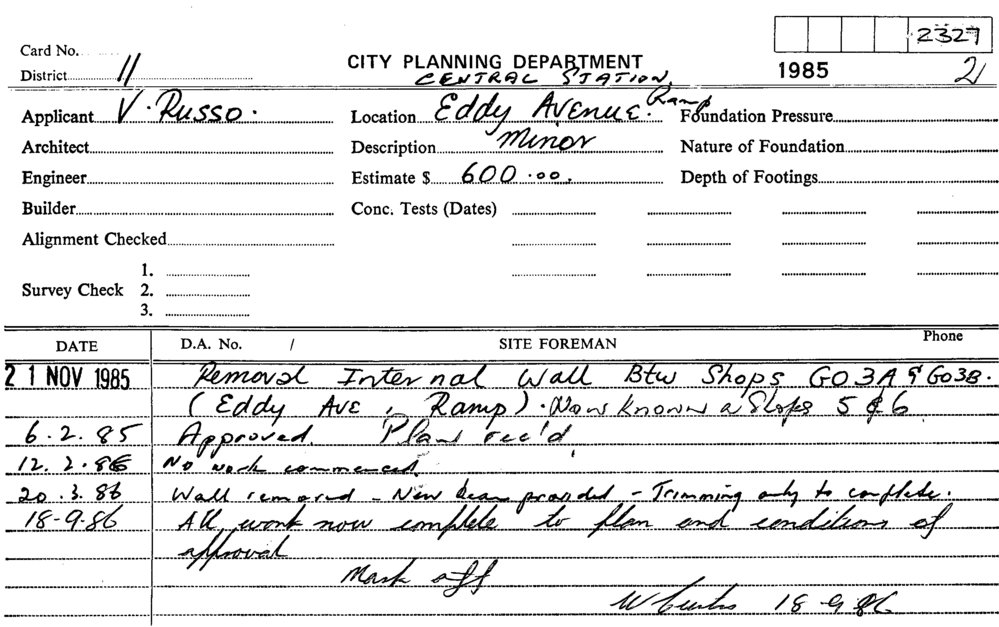 2327
Card No.
District 11
CITY PLANNING DEPARTMENT
1985
2
CENTRAL STATION
Applicant V. Russo.
Location Eddy Avenue. Ramp
Foundation Pressure
Architect
Description Minor
Nature of Foundation
Engineer
Estimate $ 600.00.
Depth of Footings
Builder
Conc. Tests (Dates)
Alignment Checked
1.
Survey Check 2.
3.
DATE D.A. No. / SITE FOREMAN Phone
21 NOV 1985 Removal Internal Wall Btw Shops G03A & G03B.
(Eddy Ave, Ramp). Now known a Shops 5 & 6
6.2.85 Approved. Plans rec'd
12.2.86 No work commenced.
20.3.86 Wall removed - New beam provided - Trimming only to complete.
18-9-86 All work now complete to plan and conditions of
approval
Mark off
W Curtis 18-9-86